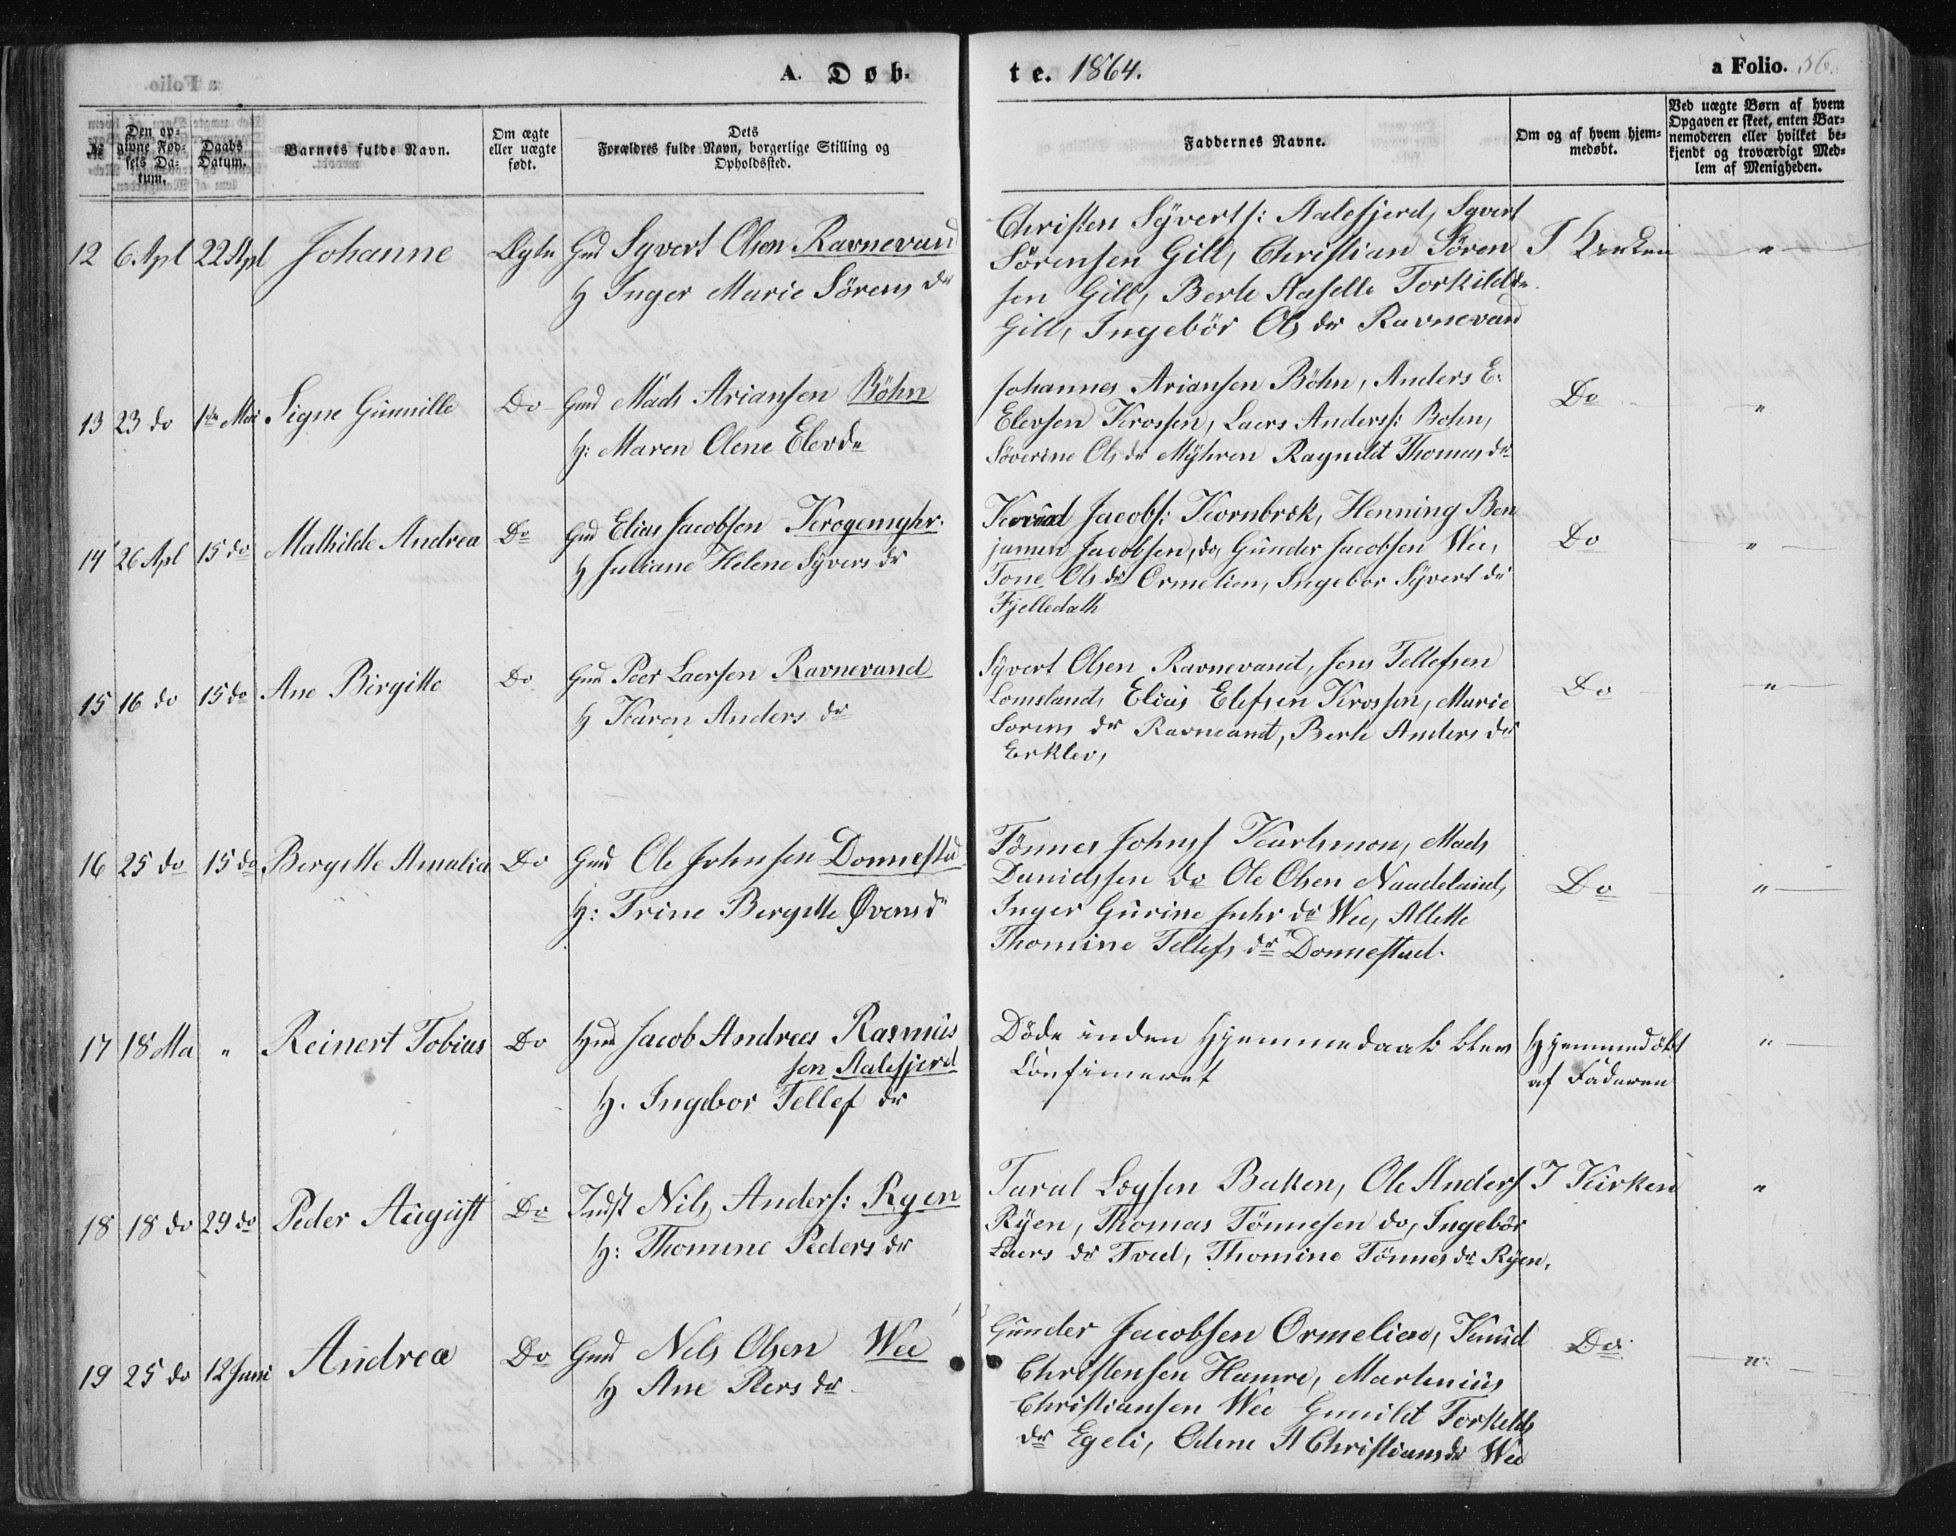 A. Døb-
te. 1864.
a Folio. 56.
№
Den op-
givne Fød-
sels Da-
tum.
Daabs
Datum.
Barnets fulde Navn.
Om ægte
eller uægte
født.
Dets
Forældres fulde Navn, borgerlige Stilling og
Opholdssted.
Faddernes Navne.
Om og af hvem hjem-
medøbt.
Ved uægte Børn af hvem
Opgaven er skeet, enten Bar-
nemoderen eller hvilket be-
kjendt og troværdigt Med-
lem af Menigheden.
12 6 Apl 22 Apl Johanne Ægte Gmd Syvert Olsen Ravnevand
H Inger Marie Sørens dr
Christen Syverts: Aalefjerd, Syvert
Sørensen Gill, Christian Søren
sen Gill, Berte Torkilds dr
Gill, Ingebör Ols dr Ravnevand
I Kirken "
13 23 do 1ste Mai Signe Gunnille Do Gmd Mads Ariansen Böhn
H: Maren Olene Elevdr
Johannes Ariansen Böhn, Anders E.
Elevsen Krossen, Laers Anderss: Bohn,
Söverine Ols dr Myhren Ragnild Thomas dr
Do "
14 26 Apl 15 do Mathilde Andrea Do Gmd Elias Jacobsen Krogemyhr.
H Juliane Helene Syvers dr
Jacobs: Kornbrek, Henning Ben
jamen Jacobsen, do, Gunder Jacobsen Wee,
Tone Ols dr Ormelien, Ingebor Syvert dr
Fjelledath
Do "
15 16 do 15 do Ane Birgitte Do Gmd Peer Laersen Ravnevand
H Karen Anders dr
Syvert Olsen Ravnevand, Jens Tellefsen
Lomsland, Elias Elefsen Krossen, Marie
Sorens dr Ravneand, Berte Anders dr
Erklev,
Do "
16 25 do 15 do Bergitte Amalia Do Gmd Ole Johnsen Donnestad
H: Trine Bergitte Øvens dr
Tönnes Johns Karlsmon, Mads
Danielssen do Ole Olsen Naadeland,
Inger Gurine dr Wee, Allette
Thomine Tellefs dr Donnestad.
Do "
17 18 Ma " Reinert Tobias Do Hmd Jacob Andreas Rasmüs
sen Aalefjerd
H. Ingebor Tellef dr
Döde inden Hjemmedaab blev
Confirmeret
Hjemmedöbt
af Faderen
"
18 18 do 29 do Peder August Do Indst Nils Anders: Ryen
H: Thomine Peders dr
Taral Loysen Baken, Ole Anders
Ryen, Thomas Tönnesen do, Ingebör
Laers dr Tved, Thomine Tönnes dr Ryen.
I Kirken "
19 25 do 12 Juni Andrea Do Gmd Nels Olsen Wee
H Ane Peers dr
Gunder Jacobsen Ormelien, Knud
Christensen Hamre, Martinius
Christiansen Wee Gunild Torkelds
dr Egeli, Odine A Christians dr Wee
Do "